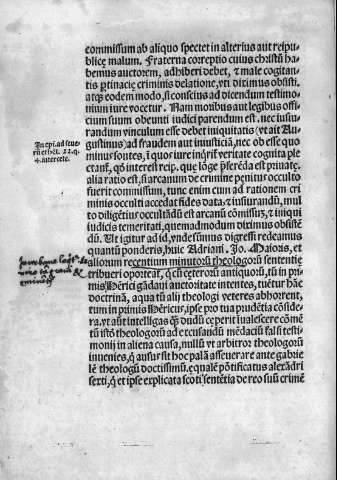 commissum ab aliquo spectet in alterius aut reipu
blicę malum. Fraterna coreptio cuius christū ha
bemus auctorem, adhiberi debet, & male cogitan
tis ptinacię criminis delatione, vti diximus obsisti.
atqꝫ eodem modo, si conscius ad dicendum testimo
nium iure vocetur. Nam moribus aut legibus offi
cium suum obeunti iudici parendum est. nec iusiu
randum vinculum esse debet iniquitatis (vt ait Au
gustinus) ad fraudem aut iniusticiā, nec ob esse quo
minus sontes, i quos iure inqrit veritate cognita ple
ctant, qd interest reip. quę lōge pferēda est priuatę.
alia ratio est, si arcanum de crimine penitus occulto
fuerit commissum, tunc enim cum ad rationem cri
minis occulti accedat fides data, & iusiurandū, mul
to diligētius occultādū est arcanū cōmissū, & iniqui
iudicis temeritati, quemadmodum diximus obsistē
dū. Ut igitur ad id, vnde sumus digressi redeamus
quantū ponderis, huic Adriani. Jo. Maioris, et
aliorum recentium minutorū theologorū sententię
tribueri oporteat, q cū cęterorū antiquorū, tū in pri
mis Hērici gādaui auctoritate intentes, tuētur hāc
doctrinā, a qua tū alij theologi veteres abhorrent,
tum in primis Hēricus, ipse pro tua prudētia cōside
ra. vt aūt intelligas q dudū cęperit iualescere cōmē
tū istō theologorū ad excusandū mēdaciū falsi testi
monij in aliena causa, nullū vt arbitror theologorū
inuenies, q ausus sit hoc palā asseuerare ante gabrie
lē theologū doctissimū. equalē pōtificatus alexādri
sexti, q et ipse explicata scoti sentētia de reo suū crimē
In epi. ad seue
rū et het. 22. q.
4. intercetc.